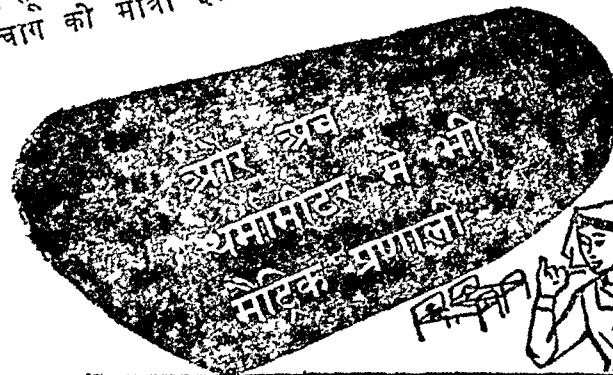 चाग की मात्रा
और अब
थर्मामीटर में भी
मैट्रिक प्रणाली